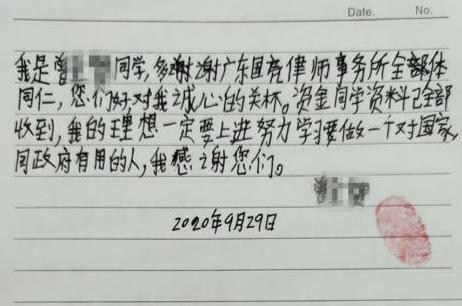 Date. No.
我是曾同学,多谢谢广东国亮律师事务所全部体
同仁,您们好对我诚心的关怀。资金同学资料已全部
收到,我的理想一定要上进努力学习要做一个对国家,
同政府有用的人,我感谢您们。
曾
2020年9月29日